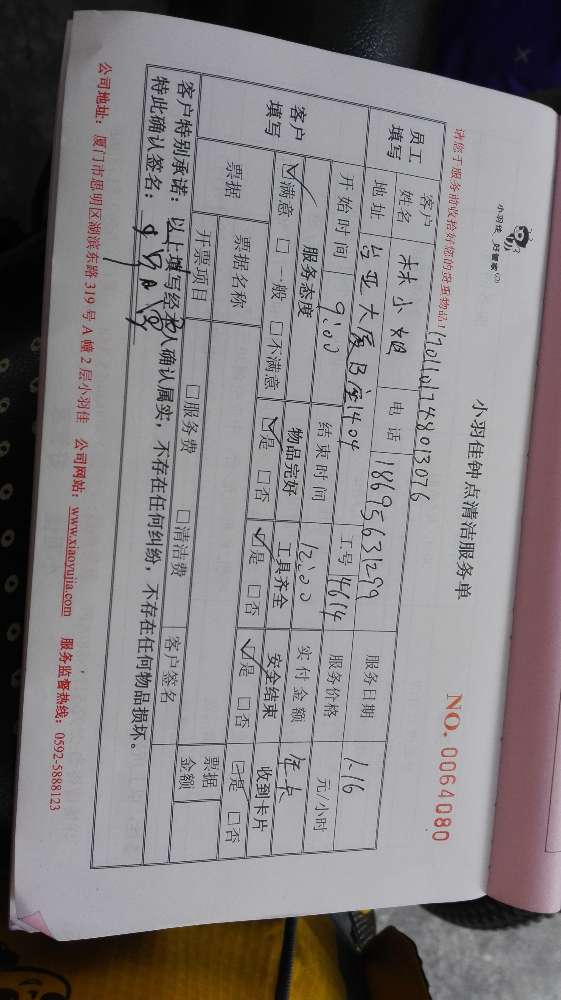 小羽佳 好管家
小羽佳钟点清洁服务单
NO. 0064080
请您于服务前收拾好您的贵重物品！ 170116174801 3076
员工填写 客户姓名 林小姐 电话 18695631299 服务日期 1.16
地址 台亚大厦B座1404 工号 14614 服务价格 元/小时
开始时间 9:00 结束时间 12:00 实付金额
客户填写 服务态度 物品完好 工具齐全 安全结束 收到卡片
☑满意 □一般 □不满意 ☑是 □否 ☑是 □否 ☑是 □否 ☑是 □否
票据 票据名称 □服务费 □清洁费 客户签名 票据金额
开票项目
客户特别承诺：以上填写经本人确认属实，不存在任何纠纷，不存在任何物品损坏。
特此确认签名：
公司地址：厦门市思明区湖滨东路319号A幢2层小羽佳 公司网站：www.xiaoyujia.com 服务监督热线：0592-5888123